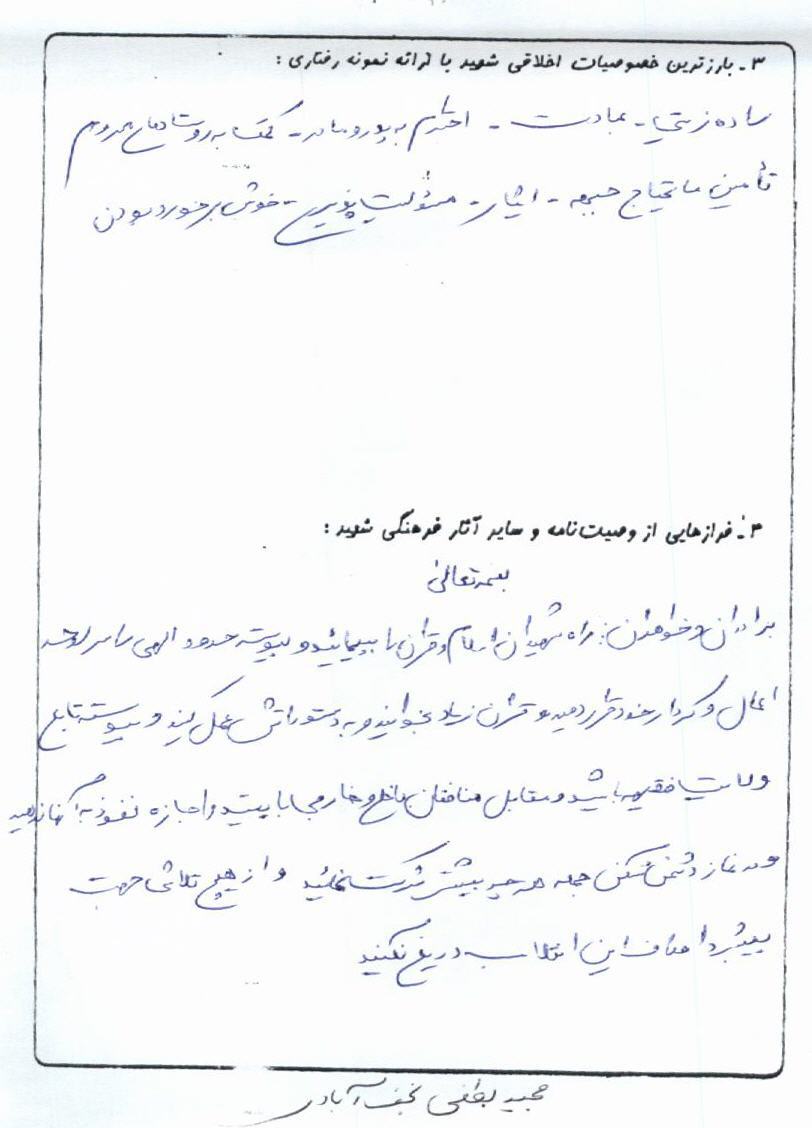 ۳ـ بارزترین خصوصیات اخلاقی شهید با ارائه نمونه رفتاری :
ساده زیستی - عبادت - احترام به پدر و مادر - کمک به روستاهای محروم
تأمین مایحتاج جبهه - ایثار - مسؤلیت پذیری - خوش برخورد بودن
۴ـ فرازهایی از وصیت‌نامه و سایر آثار فرهنگی شهید :
بسمه تعالی
برادران و خواهران: راه شهیدان اسلام و قرآن را بپیمائید و پیوسته حدود الهی را سرلوحه
اعمال و کردار خود قرار دهید و قرآن زیاد بخوانید و به دستوراتش عمل کنید و پیوسته تابع
ولایت فقیه باشید و مقابل منافقان داخلی و خارجی بایستید و اجازه نفوذ به آنها ندهید
و در نماز دشمن شکن جمعه هر چه بیشتر شرکت نمائید و از هیچ تلاشی جهت
پیشبرد اهداف این انقلاب دریغ نکنید
مجید لطفی نجف آبادی